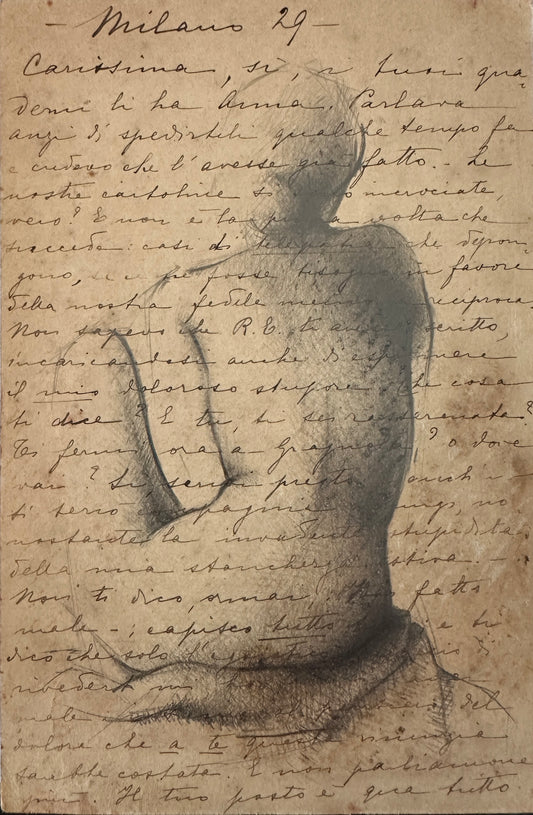 - Milano 29 -
Carissima, sì, i tuoi qua-
derni li ha Anna. Parlava
anzi di spedirteli qualche tempo fa
e credevo che l'avesse già fatto. - Le
nostre cartoline si sono incrociate,
vero? E non è la prima volta che
succede: casi di telepatia che depon-
gono, se ce ne fosse bisogno in favore
della nostra fedele reciproca.
Non sapevo che R.E. ti avesse scritto,
incaricandosi anche di esprimere
il mio doloroso stupore. Che cosa
ti dice? E tu, ti sei rasserenata?
Ti fermi ora a Gragnola? o dove
vai? Sì, scrivi presto anch'
ti terrò compagnia, no-
nostante la invadente stupidità
della mia stanchezza estiva. -
Non ti dico, ormai, fatto
male -; capisco tutto e ti
dico che solo di
rivederti mi
male del
dolore che a te questa rinunzia
sarebbe costata. E non parliamone
più. Il tuo posto è qua tutto.